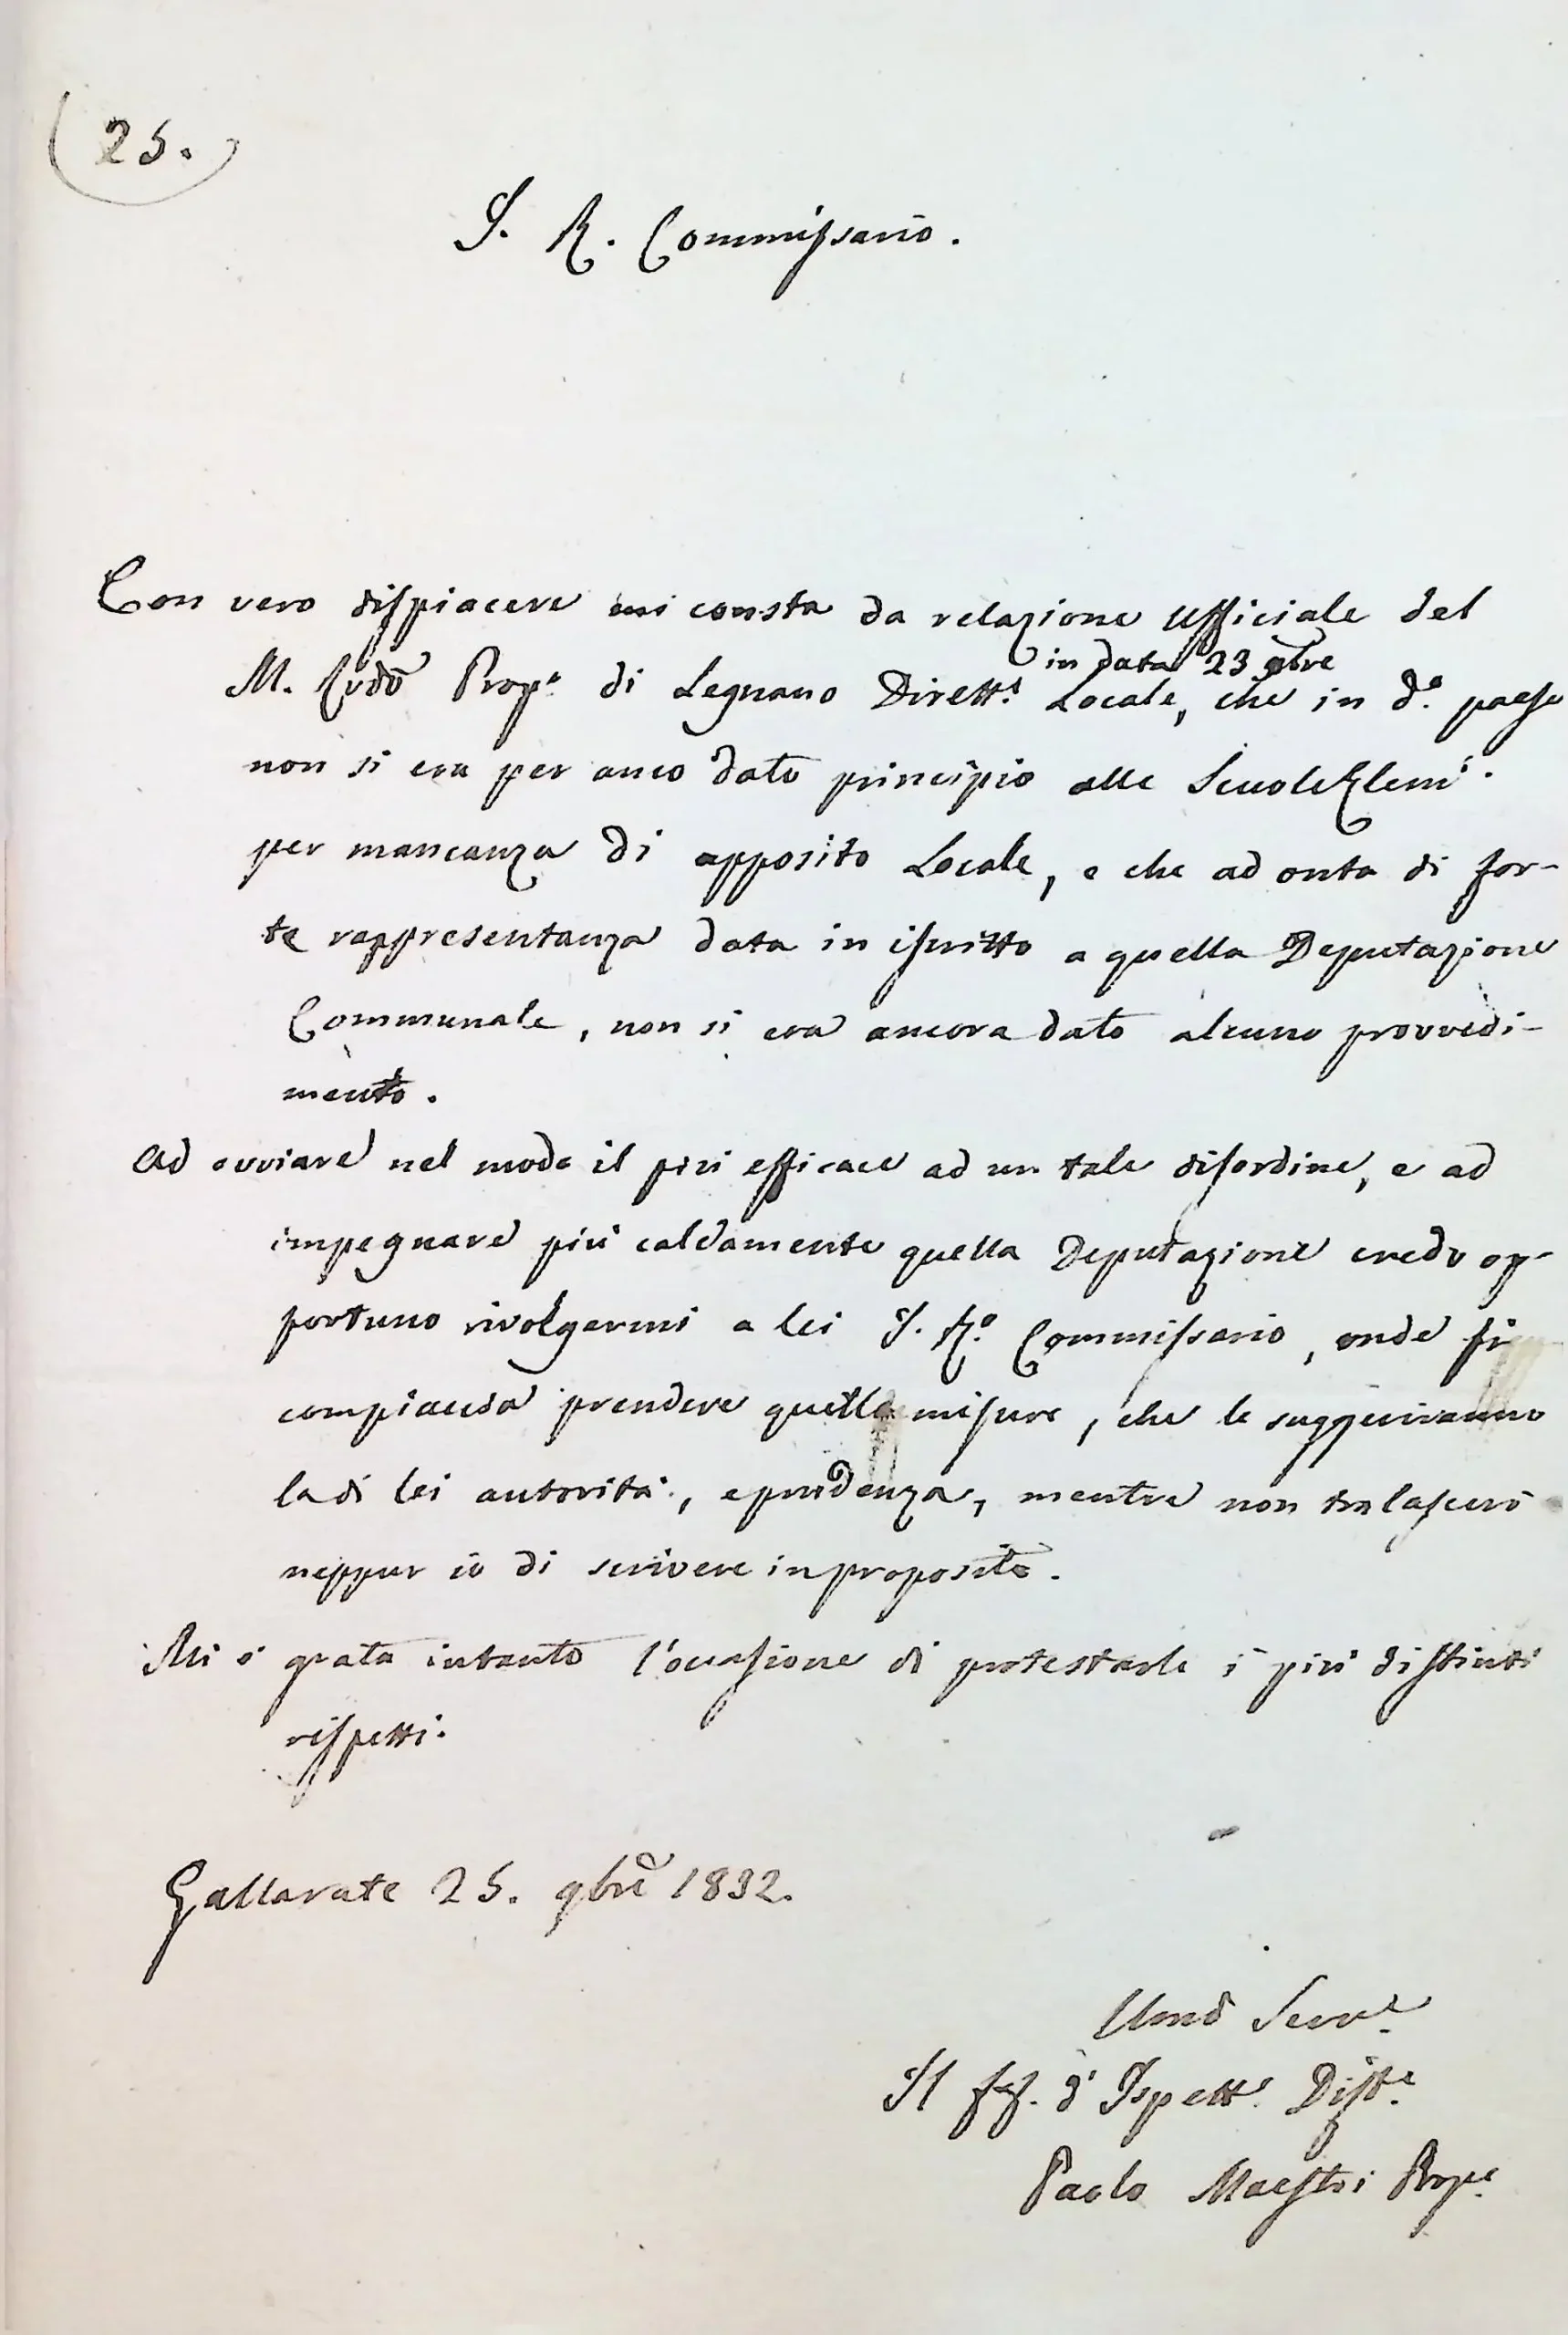 (25.)
I. R. Commissario.
Con vero dispiacere mi consta da relazione ufficiale del
in data 23 9bre
M. Rvdo Propo. di Legnano Dirette. Locale, che in do. paese
non si era per anco dato principio alle Scuole Elemi.
per mancanza di apposito Locale, e che ad onta di for-
te rappresentanza data in iscritto a quella Deputazione
Communale, non si era ancora dato alcuno provvedi-
mento.
Ad ovviare nel modo il più efficace ad un tale disordine, e ad
impegnare più caldamente quella Deputazione credo op-
portuno rivolgermi a lei I. Ro. Commissario, onde si
compiaccia prendere quelle misure, che le suggeriranno
la di lei autorità, e prudenza, mentre non tralascerò
neppur io di scrivere in proposito.
Mi è grata intanto l'occasione di protestarle i più distinti
rispetti.
Gallarate 25. 9bre 1832.
Umo Serve.
Il ff. d' Ispette. Diste.
Paolo Maestri Prope.